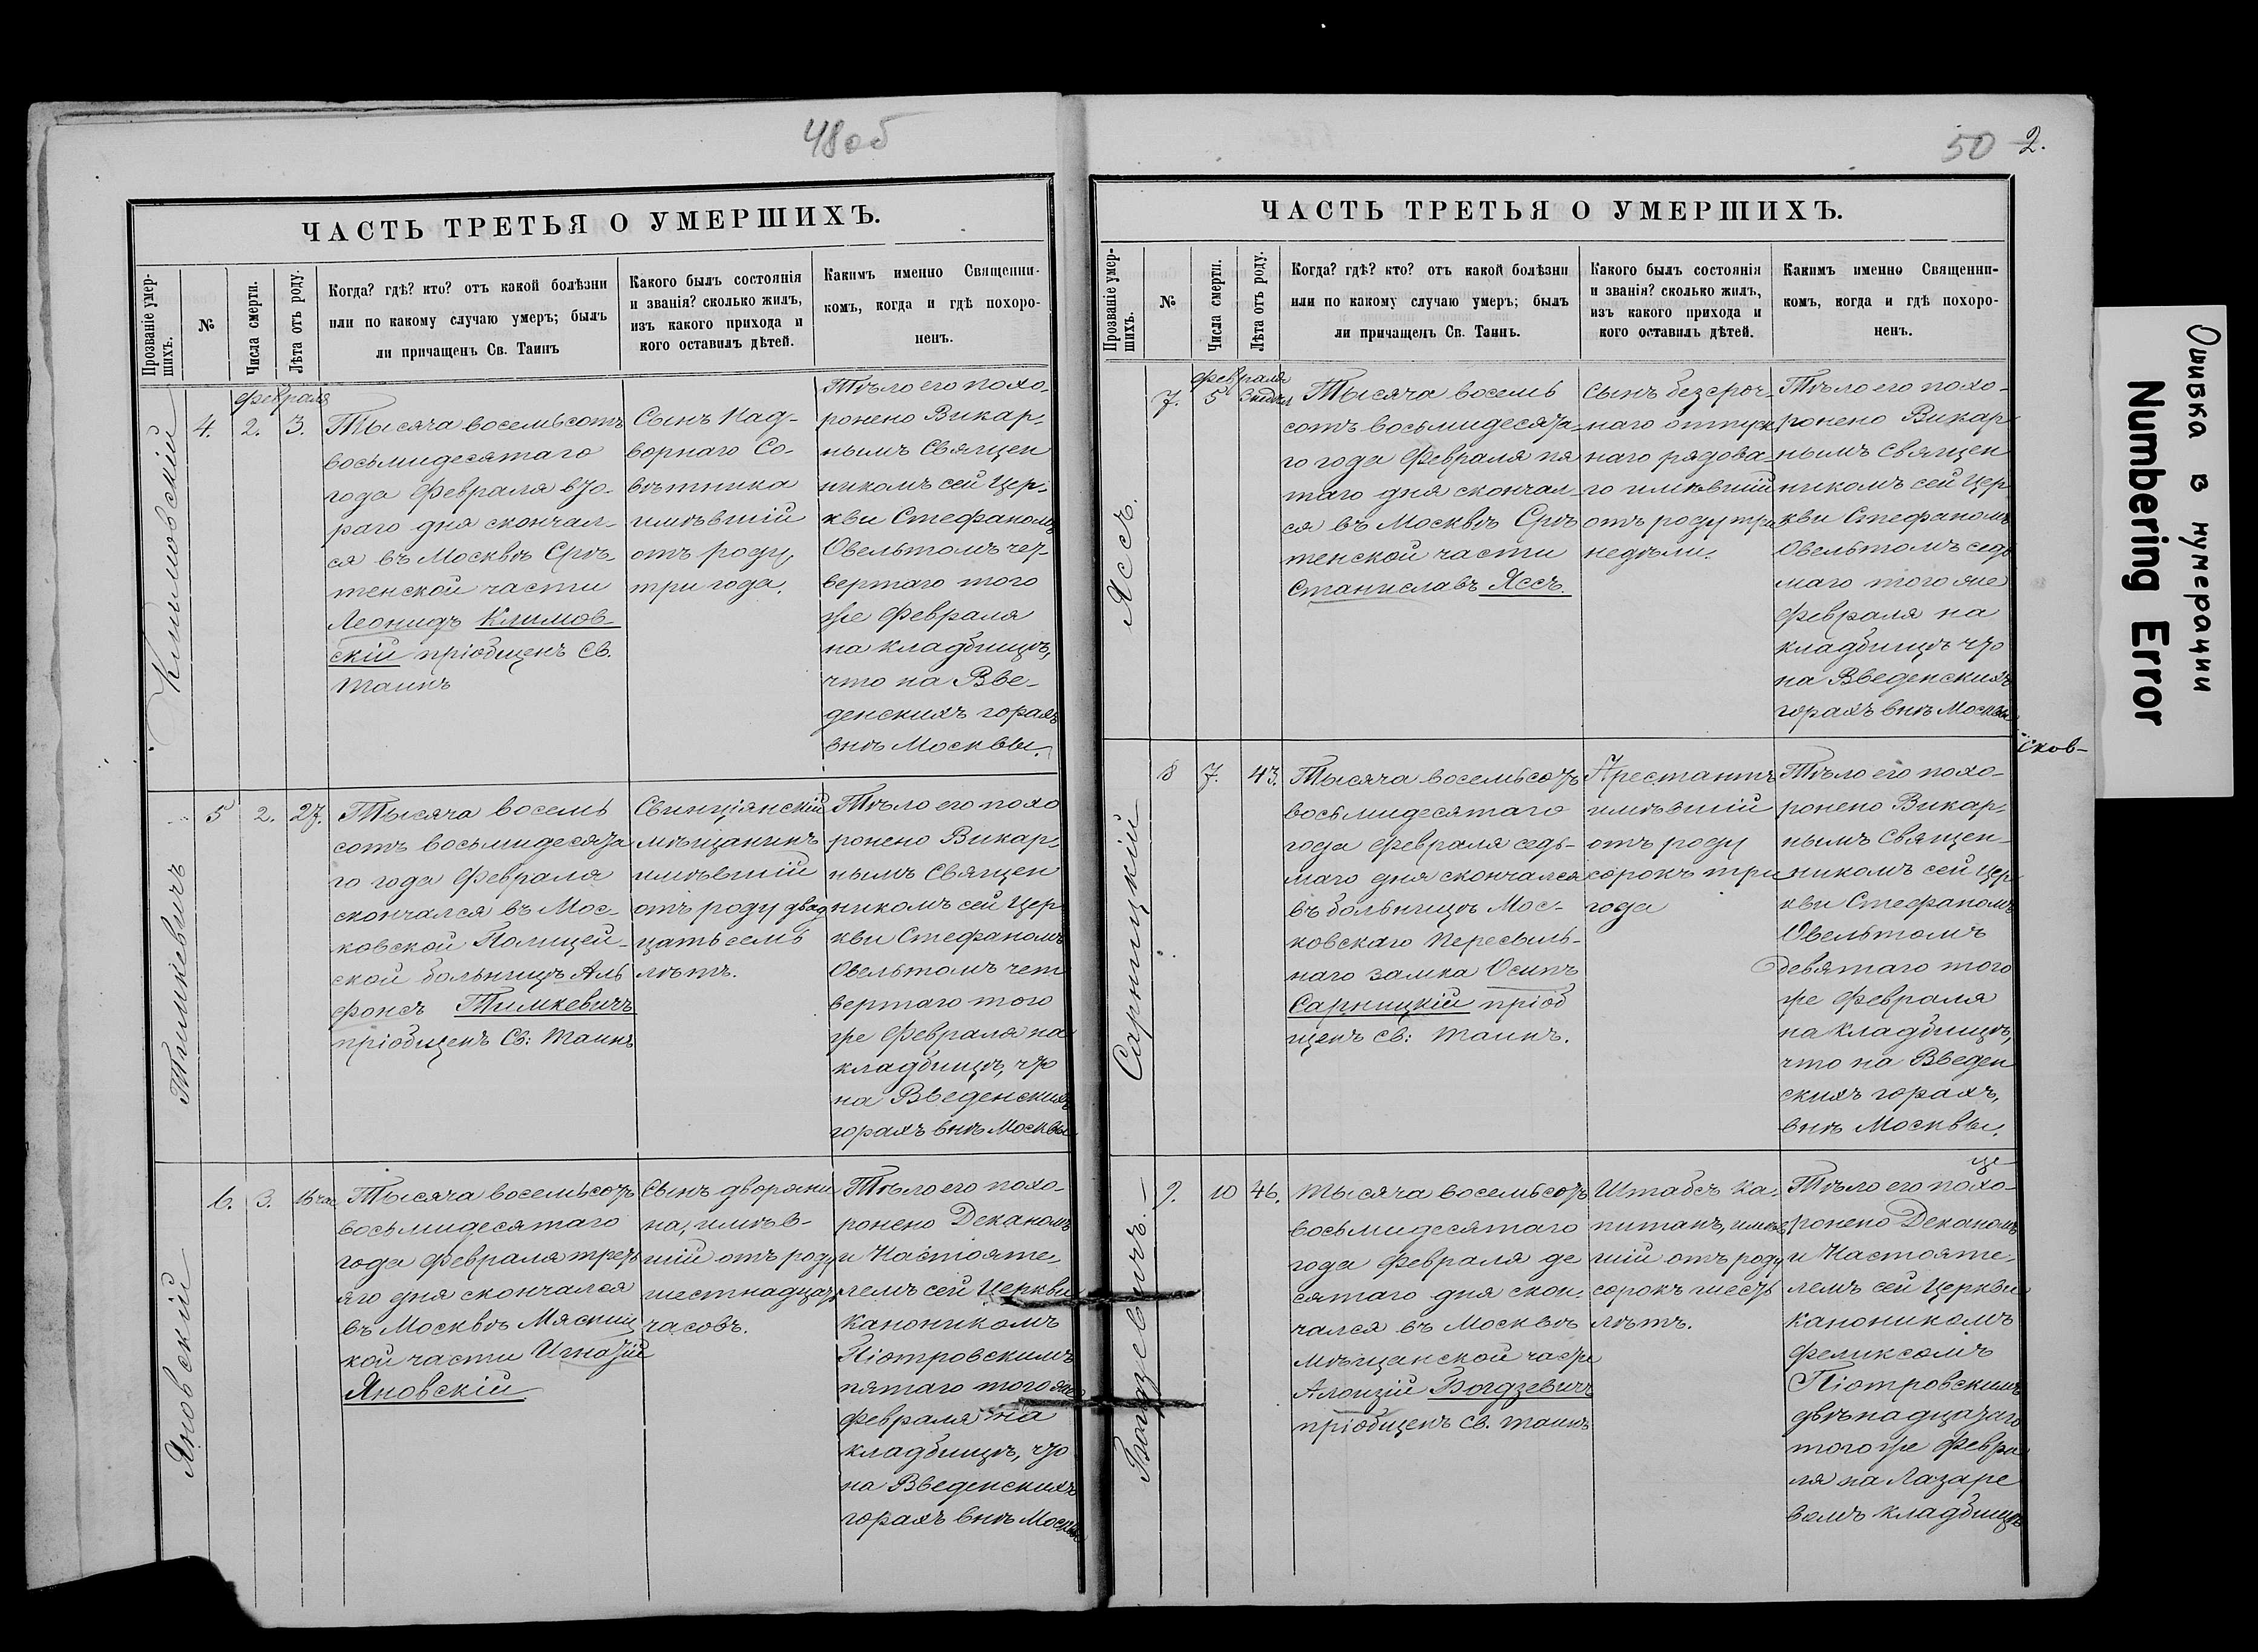 48об
ЧАСТЬ ТРЕТЬЯ О УМЕРШИХЪ.
Прозваніе умершихъ.
№
Числа смерти.
Лѣта отъ роду.
Когда? гдѣ? кто? отъ какой болѣзни
или по какому случаю умеръ; былъ
ли причащенъ Св. Таинъ
Какого былъ состоянія
и званія? сколько жилъ,
изъ какого прихода и
кого оставилъ дѣтей.
Какимъ именно Священни-
комъ, когда и гдѣ похоро-
ненъ.
Климовскій
4.
февраля
2.
3.
Тысяча восемьсотъ
восьмидесятаго
года Февраля вто-
раго дня скончал-
ся въ Москвѣ Срѣ-
тенской части
Леонидъ Климов-
скій пріобщенъ Св.
Таинъ
Сынъ Над-
ворнаго Со-
вѣтника
имѣвшій
отъ роду
три года.
Тѣло его похо-
ронено Викар-
нымъ Священ
никомъ сей Цер-
кви Стефаномъ
Овельтомъ чет-
вертаго того
же Февраля
на кладбищѣ,
что на Вве-
денскихъ горахъ
внѣ Москвы.
Тимкевичъ
5
2.
27.
Тысяча восемь
сотъ восьмидесята
го года Февраля
скончался въ Мос-
ковской Полицей-
ской больницѣ Аль
фонсъ Тимкевичъ
пріобщенъ Св: Таинъ
Свинціянскій
мѣщанинъ
имѣвшій
отъ роду двад
цать семь
лѣтъ.
Тѣло его похо
ронено Викар-
нымъ Священ
никомъ сей Цер
кви Стефаномъ
Овельтомъ чет
вертаго того
же Февраля на
кладбищѣ, что
на Введенскихъ
горахъ внѣ Москвы
Яновскій
6.
3.
16 час
Тысяча восемьсотъ
восьмидесятаго
года Февраля треть
яго дня скончался
въ Москвѣ Мясниц
кой части Игнатій
Яновскій
Сынъ дворяни
на, имѣв-
шій отъ роду
шестнадцать
часовъ.
Тѣло его похо-
ронено Деканомъ
и Настояте-
лемъ сей Церкви
Каноникомъ
Піотровскимъ
пятаго того же
Февраля на
кладбищѣ, что
на Введенскихъ
горахъ внѣ Москвы
50 2.
ЧАСТЬ ТРЕТЬЯ О УМЕРШИХЪ.
Прозваніе умершихъ.
№
Числа смерти.
Лѣта отъ роду.
Когда? гдѣ? кто? отъ какой болѣзни
или по какому случаю умеръ; былъ
ли причащенъ Св. Таинъ.
Какого былъ состоянія
и званія? сколько жилъ,
изъ какого прихода и
кого оставилъ дѣтей.
Какимъ именно Священни-
комъ, когда и гдѣ похоро-
ненъ.
Яссъ.
7.
февраля
5
Тысяча восемь
сотъ восьмидесята-
го года Февраля пя
таго дня скончал-
ся въ Москвѣ Срѣ
тенской части
Станиславъ Яссъ.
Сынъ безсроч-
наго отпуск
наго рядова-
го имѣвшій
отъ роду три
недѣли.
Тѣло его похо-
ронено Викар
нымъ Священ
никомъ сей Цер
кви Стефаномъ
Овельтомъ седь
маго того же
Февраля на
кладбищѣ что
на Введенскихъ
горахъ внѣ Москвы
сков-
Сарницкій
8
7.
43.
Тысяча восемьсотъ
восьмидесятаго
года Февраля седь-
маго дня скончался
въ больницѣ Мос-
ковскаго Пересыль-
наго замка Осипъ
Сарницкій пріоб
щенъ Св: Таинъ.
Арестантъ
имѣвшій
отъ роду
сорокъ три
года
Тѣло его похо-
ронено Викар-
нымъ Священ-
никомъ сей Цер
кви Стефаномъ
Овельтомъ
девятаго того
же Февраля
на кладбищѣ,
что на Введен
скихъ горахъ,
внѣ Москвы.
це
Богдзевичъ.
9.
10
46.
Тысяча восемьсотъ
восьмидесятаго
года Февраля де
сятаго дня скон-
чался въ Москвѣ
Мѣщанской части
Алоизій Богдзевичъ
пріобщенъ Св. Таинъ
Штабсъ Ка-
питанъ, имѣв
шій отъ роду
сорокъ шесть
лѣтъ.
Тѣло его похо-
ронено Деканомъ
и Настояте-
лемъ сей Церкви
Каноникомъ
Феликсомъ
Піотровскимъ
двѣнадцатаго
того же Февра
ля на Лазаре
вомъ кладбищѣ
Ошибка в нумерации
Numbering Error